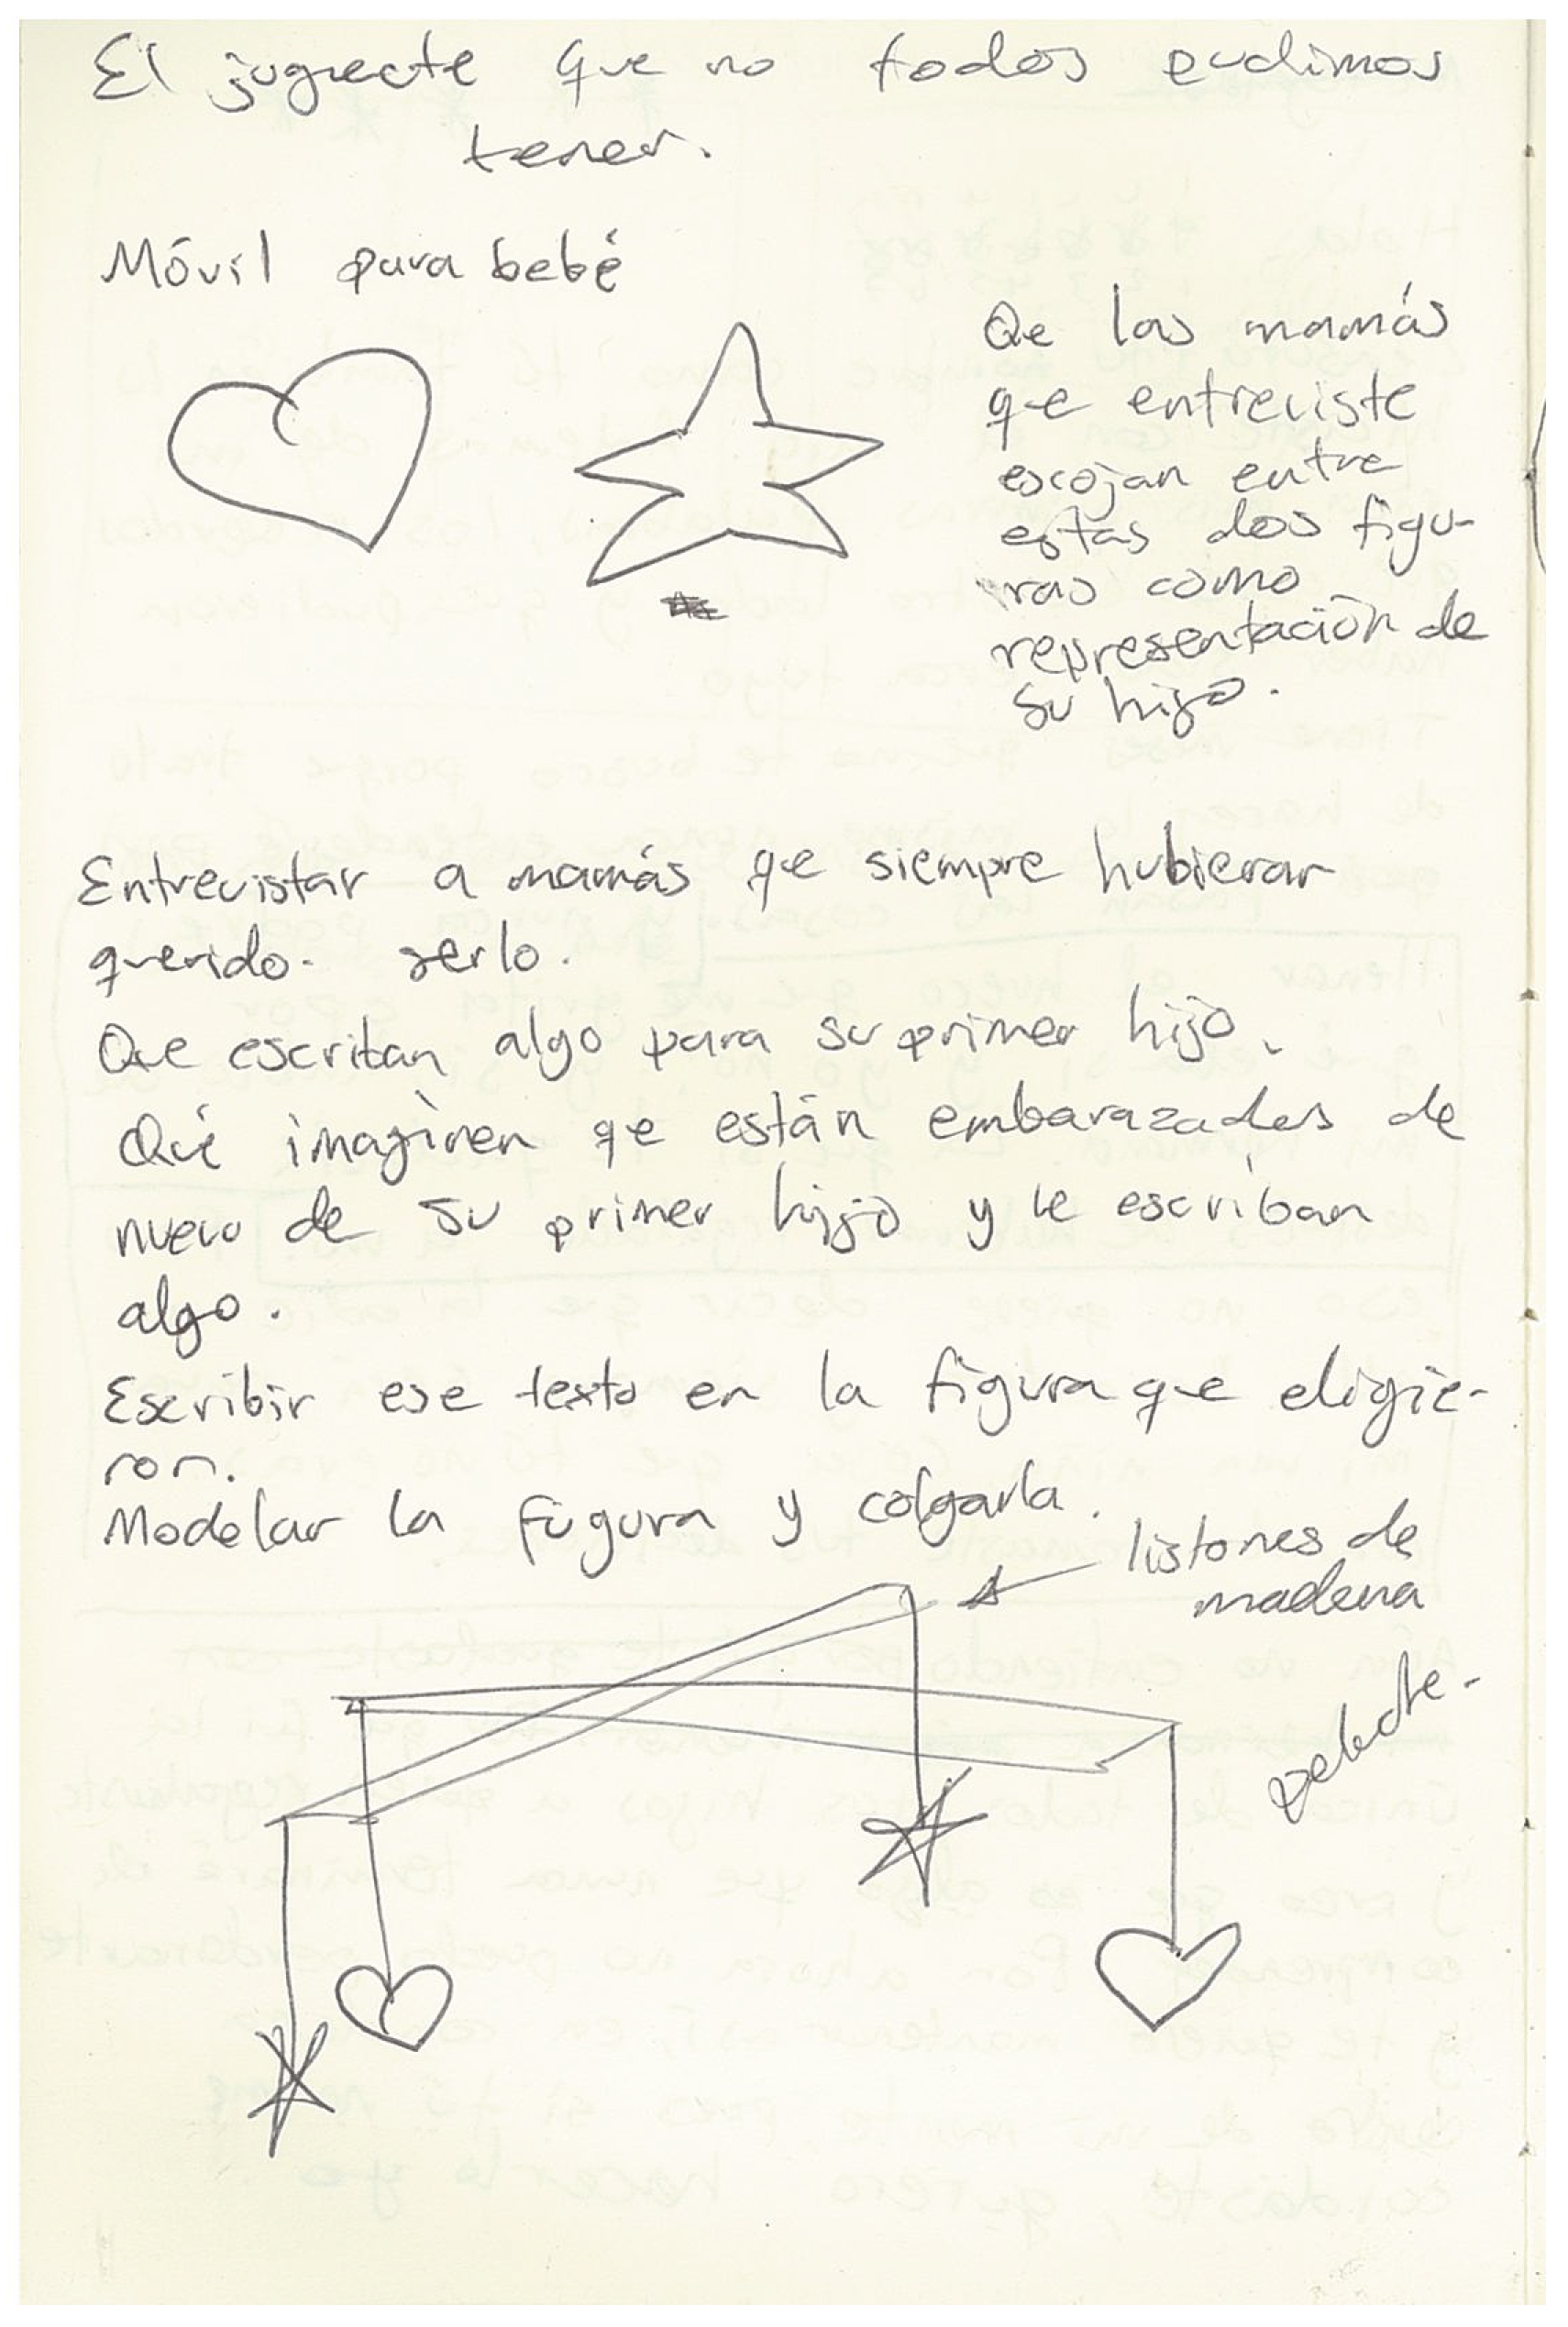 El juguete que no todos pudimos
tener.
Móvil para bebé
Qe las mamás
qe entreviste
escojan entre
estas dos figu-
ras como
representación de
su hijo.
Entrevistar a mamás qe siempre hubieran
querido. serlo.
Que escriban algo para su primer hijo.
Qué imaginen qe están embarazadas de
nuevo de su primer hijo y le escriban
algo.
Escribir ese texto en la figura que eligie-
ron.
Modelar la fugura y colgarla.
listones de
madera